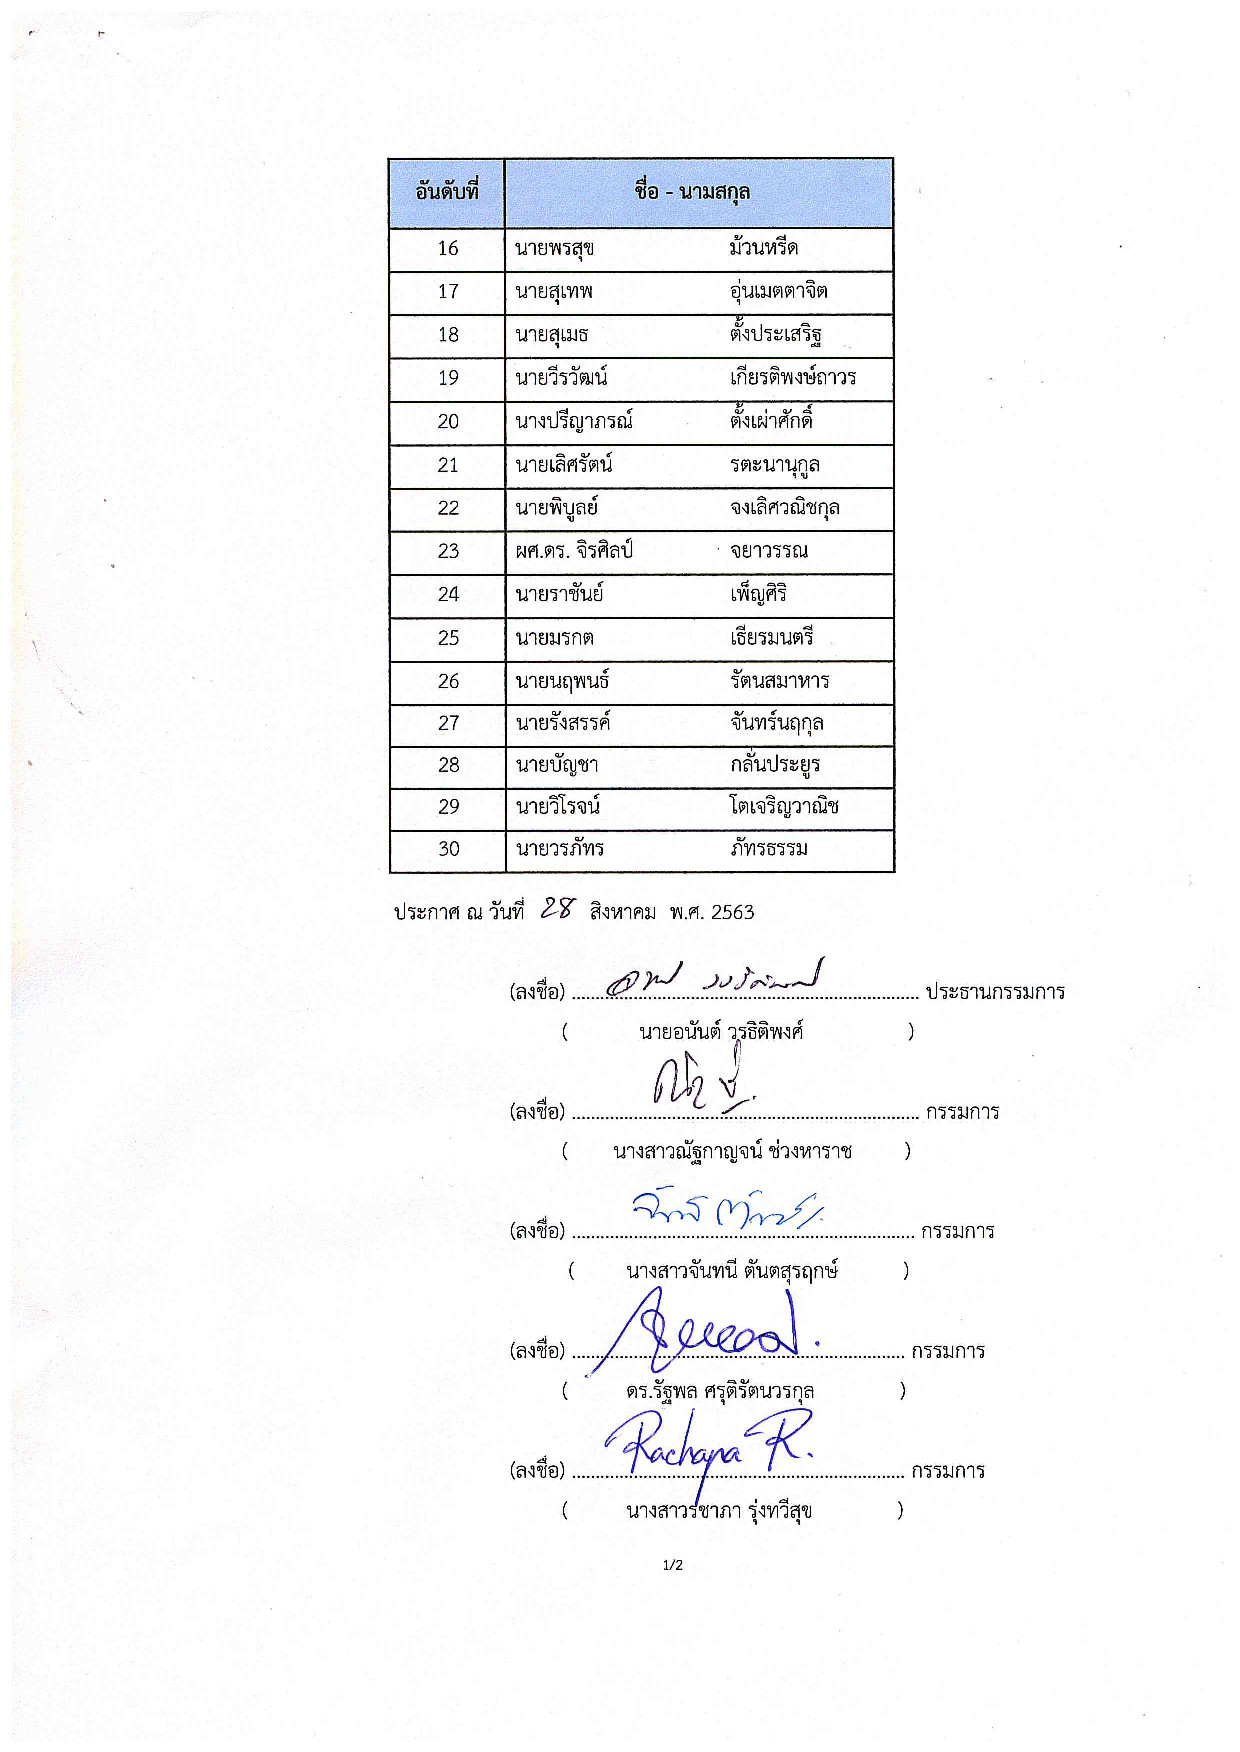 อันดับที่ ชื่อ - นามสกุล
16 นายพรสุข ม้วนหรีด
17 นายสุเทพ อุ่นเมตตาจิต
18 นายสุเมธ ตั้งประเสริฐ
19 นายวีรวัฒน์ เกียรติพงษ์ถาวร
20 นางปรีญาภรณ์ ตั้งเผ่าศักดิ์
21 นายเลิศรัตน์ รตะนานุกูล
22 นายพิบูลย์ จงเลิศวณิชกุล
23 ผศ.ดร. จิรศิลป์ จยาวรรณ
24 นายราชันย์ เพ็ญศิริ
25 นายมรกต เธียรมนตรี
26 นายนฤพนธ์ รัตนสมาหาร
27 นายรังสรรค์ จันทร์นฤกุล
28 นายบัญชา กลั่นประยูร
29 นายวิโรจน์ โตเจริญวาณิช
30 นายวรภัทร ภัทรธรรม
ประกาศ ณ วันที่ 28 สิงหาคม พ.ศ. 2563
(ลงชื่อ) ........ ประธานกรรมการ
( นายอนันต์ วรธิติพงศ์ )
(ลงชื่อ) ........ กรรมการ
( นางสาวณัฐกาญจน์ ช่วงหาราช )
(ลงชื่อ) ........ กรรมการ
( นางสาวจันทนี ตันตสุรฤกษ์ )
(ลงชื่อ) ........ กรรมการ
( ดร.รัฐพล ศรุติรัตนวรกุล )
(ลงชื่อ) Rachapa R. กรรมการ
( นางสาวรชาภา รุ่งทวีสุข )
1/2